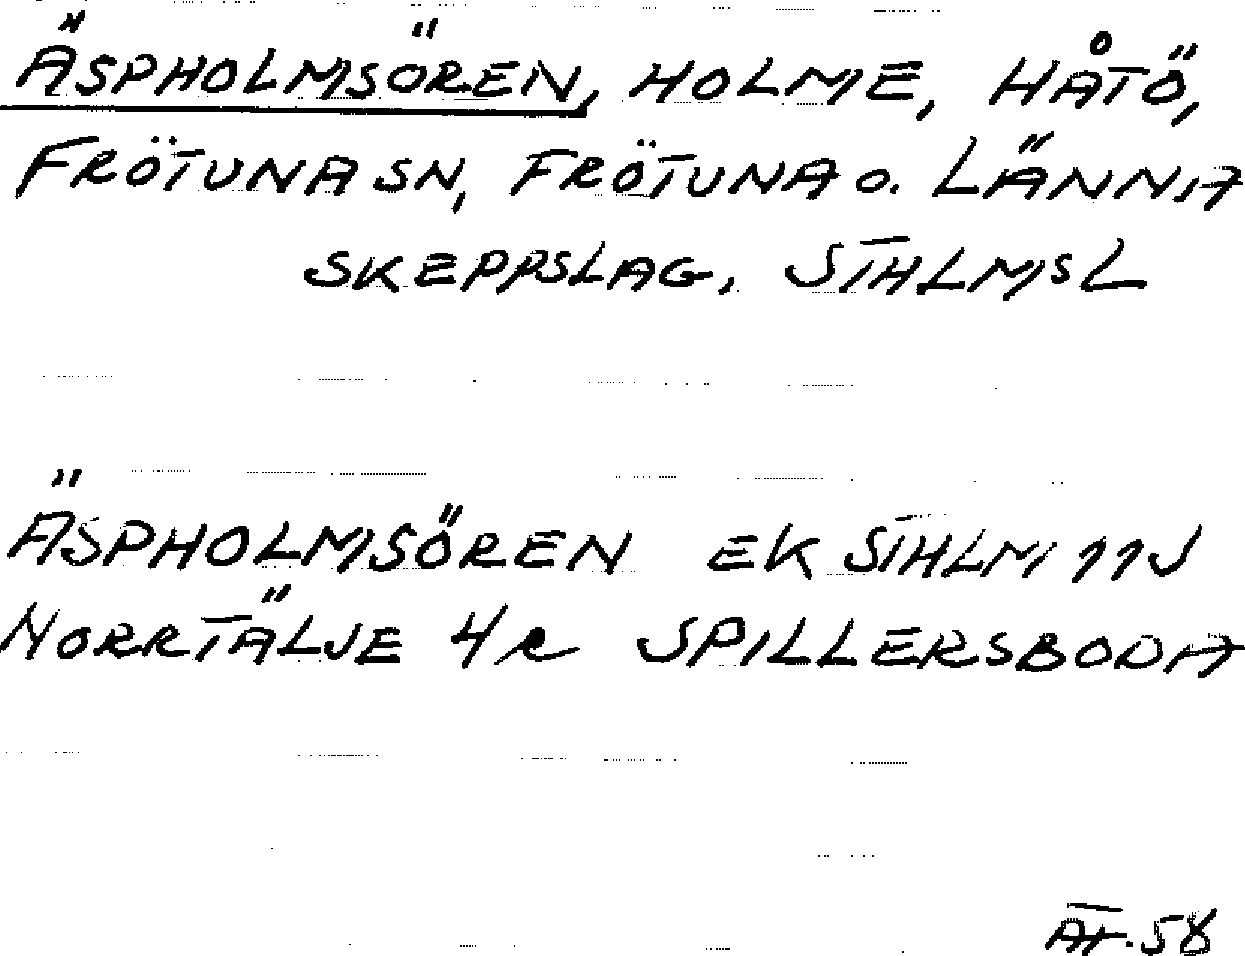 ÄSPHOLMSÖREN, HOLME, HÅTÖ,
FRÖTUNA SN, FRÖTUNA O. LÄNNA
SKEPPSLAG, STHLMS L
ÄSPHOLMSÖREN EK STHLM 11J
NORRTÄLJE 4 R SPILLERSBODA
AT. 58